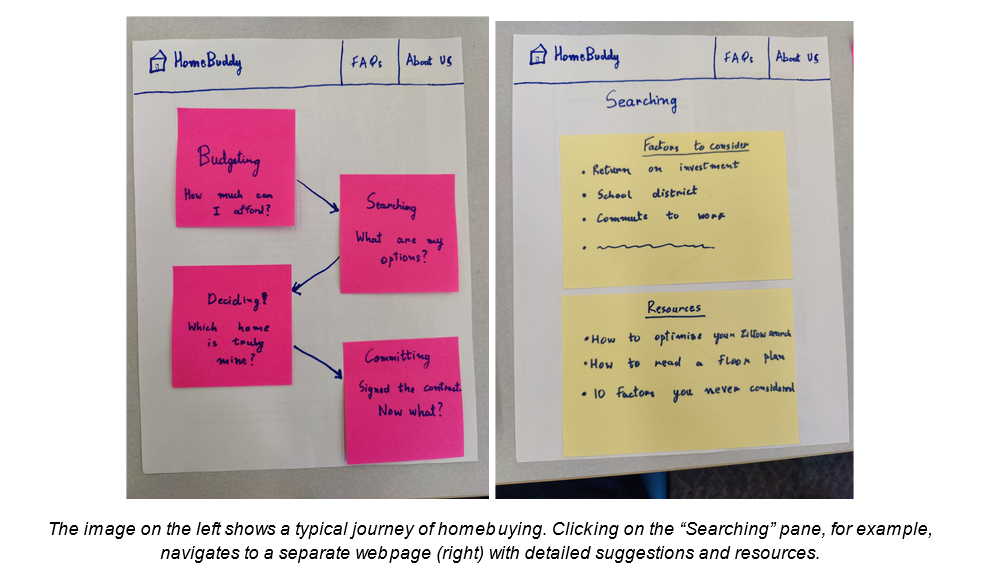 HomeBuddy
FAQs
About Us
Budgeting
How much can
I afford?
Searching
What are my
options?
Deciding!
Which home
is truly
mine?
Committing
Signed the contract.
Now what?
HomeBuddy
FAQs
About Us
Searching
Factors to consider
• Return on investment
• School district
• Commute to work
•
Resources
• How to optimize your Zillow search
• How to read a floor plan
• 10 Factors you never considered
The image on the left shows a typical journey of homebuying. Clicking on the “Searching” pane, for example,
navigates to a separate webpage (right) with detailed suggestions and resources.